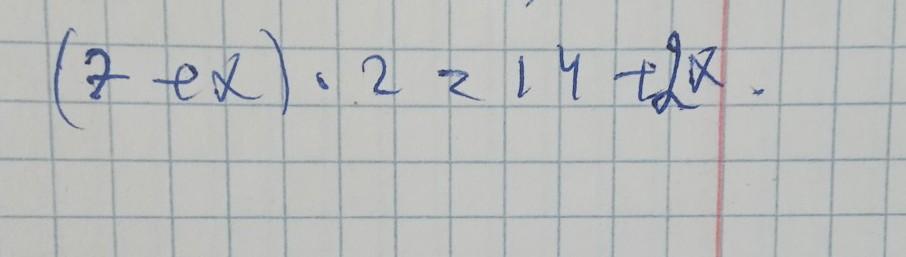 (7 + x) · 2 = 14 + 2x.